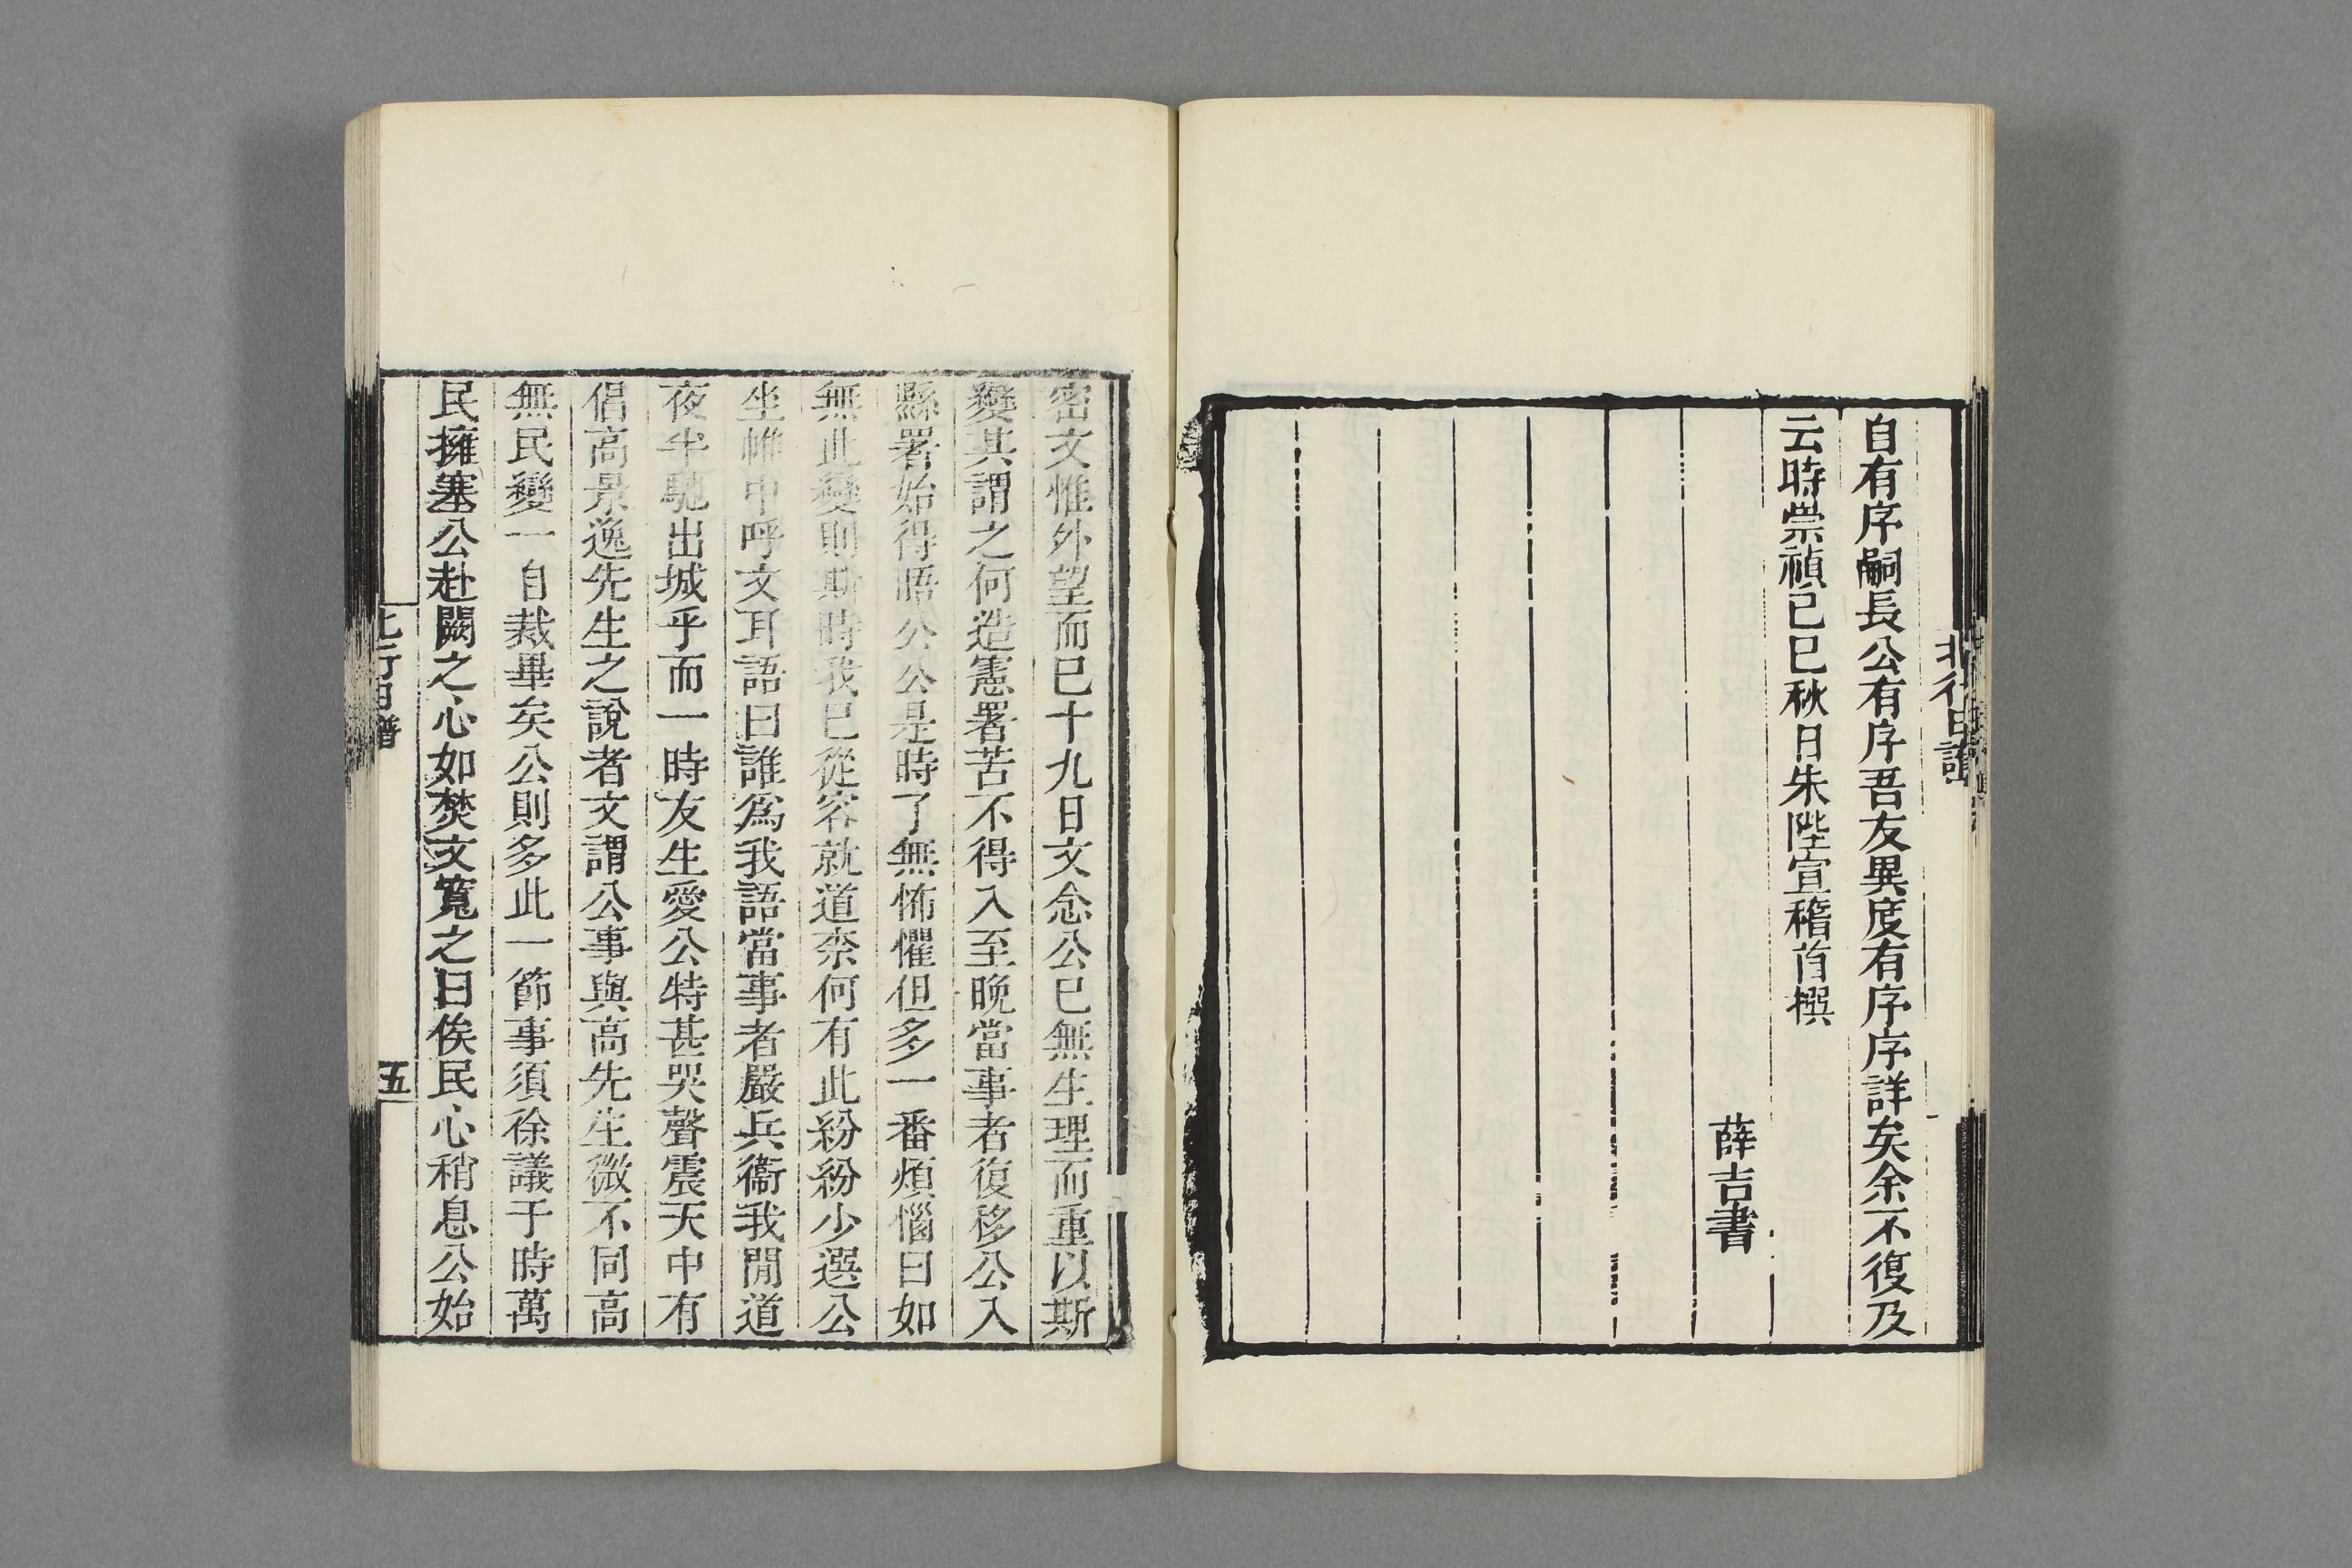 自有序嗣長公有序吾友異度有序序詳矣余不復及
云時崇禎己巳秋日朱陛宣稽首撰
薛吉書
北行日譜
密文惟外望而已十九日文念公已無生理而重以斯
變其謂之何造憲署苦不得入至晚當事者復移公入
縣署始得晤公公是時了無怖懼但多一番煩惱曰如
無此變則斯時我已從容就道柰何有此紛紛少選公
坐帷中呼文耳語曰誰爲我語當事者嚴兵衞我閒道
夜半馳出城乎而一時友生愛公特甚哭聲震天中有
倡高景逸先生之說者文謂公事與高先生微不同高
無民變一自裁畢矣公則多此一節事須徐議于時萬
民擁塞公赴闕之心如焚文寬之曰俟民心稍息公始
北行日譜
五